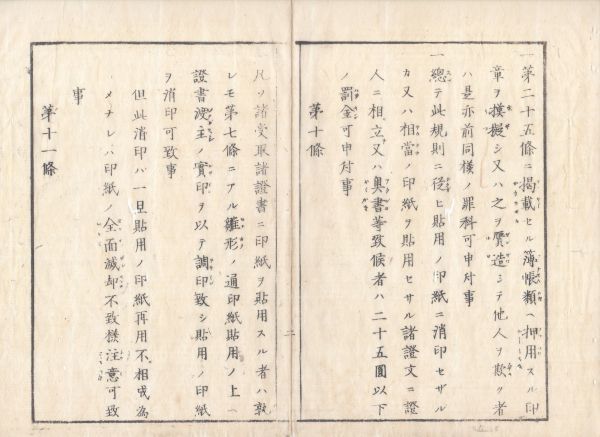 一第二十五條ニ掲載セル簿帳類ヘ押用スル印
章ヲ摸擬シ又ハ之ヲ贋造シテ他人ヲ欺ク者
ハ是亦前同様ノ罪科可申付事
一總テ此規則ニ従ヒ貼用ノ印紙ニ消印セザル
カ又ハ相當ノ印紙ヲ貼用セサル諸證文ニ證
人ニ相立又ハ奥書等致候者ハ二十五圓以下
ノ罰金可申付事
第十條
二
一凡ソ諸受取諸證書ニ印紙ヲ貼用スル者ハ孰
レモ第七條ニアル雛形ノ通印紙貼用ノ上ヘ
證書渡主ノ實印ヲ以テ調印致シ貼用ノ印紙
ヲ消印可致事
但此消印ハ一旦貼用ノ印紙再用不相成為
メナレバ印紙ノ全面滅却不致様注意可致
事
第十一條